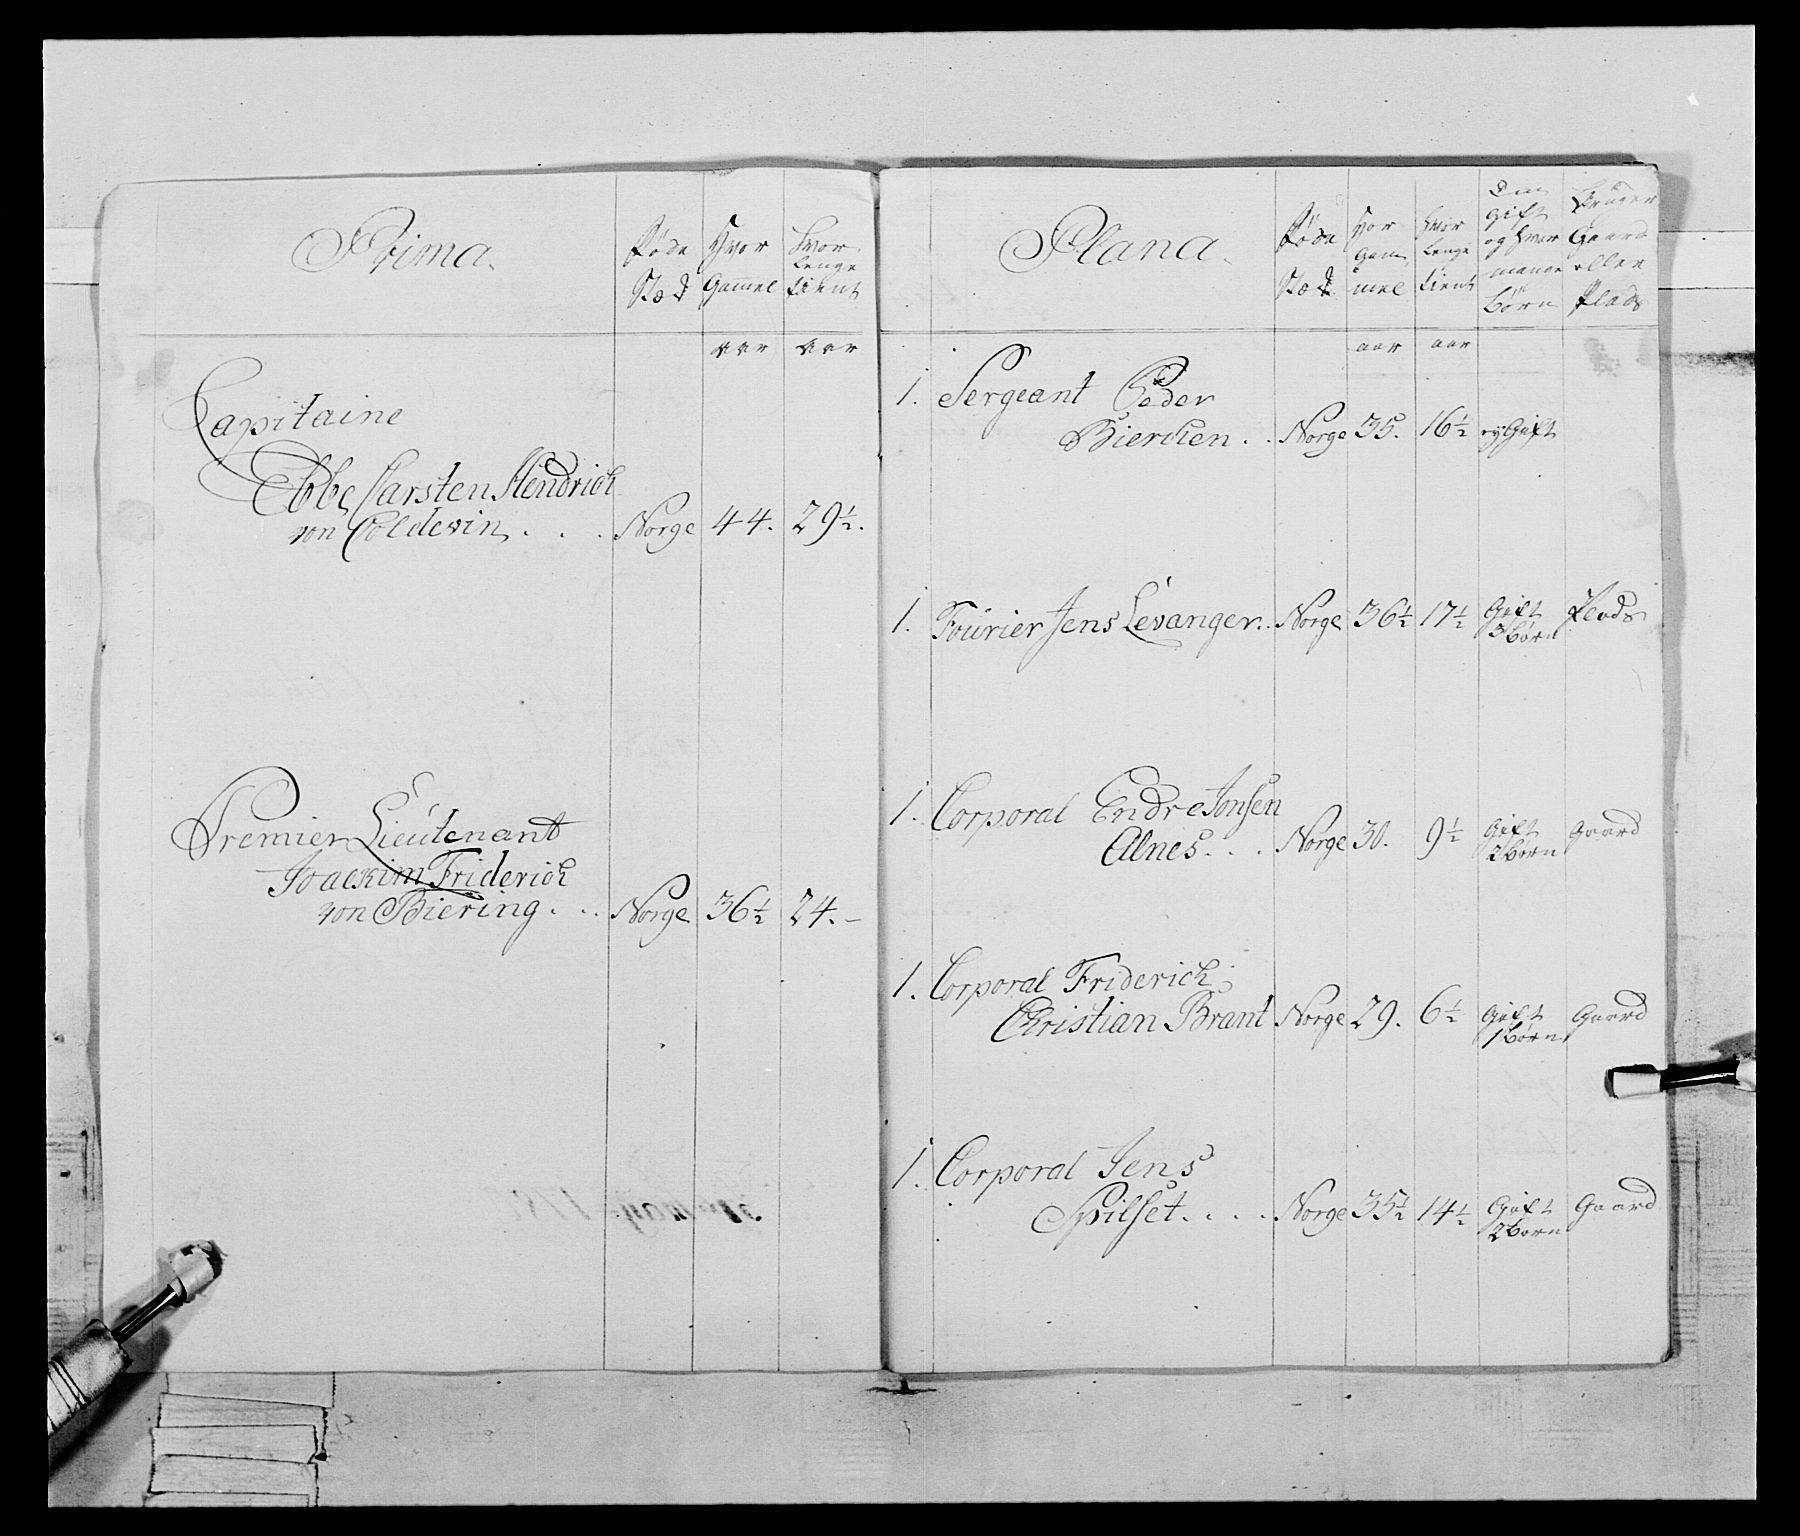 Prima.
Føde Stæd
Hvor Gammel
Hvor Lenge tient
aar aar
Capitaine
Ebbe Carsten Hendrich
von Coldevin . . . Norge 44. 29½.
Premier Lieutenant
Joackim Friderich
von Biering . . . Norge 36½ 24.–
Plana.
Føde Stæd
Hvor Gam„ mel
Hvor Lenge tient
Om gift og hvor mange børn
Bruger Gaard eller Plads
aar aar
1. Sergeant Peder
Biercken . . Norge 35. 16½ ey Gift
1. Fourier Jens Levanger . . Norge 36½ 17½ Gift Plads
3 børn
1. Corporal Endre Jonsen
Alnes . . . Norge 30. 9½ Gift Gaard
2 børn
1. Corporal Friderich
Christian Brant Norge 29. 6½ Gift Gaard
1 børn
1. Corporal Jens
Spilset . . . . Norge 35½ 14½ Gift Gaard
2 børn